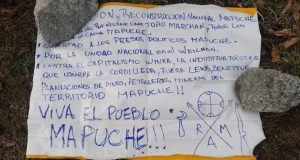 ION, RECONSTRUCCION NACIONAL MAPUCHE.
COMO TOÑO MARCHAN, TODOS LOS
CAUSA MAPUCHE.
LIBERTAD A LOS PRESOS POLITICOS MAPUCHE.
* POR LA UNIDAD NACIONAL EN EL WEICHAN.
CONTRA EL CAPITALISMO WINKA, LA INDUSTRIA TURISTICA
QUE USURPA LA CORDILLERA, FUERA LEWIS, BENETTON,
PLANTACIONES DE PINOS, PETROLERAS, MINERAS DEL
TERRITORIO MAPUCHE!!
VIVA EL PUEBLO
MAPUCHE!!!
R A M